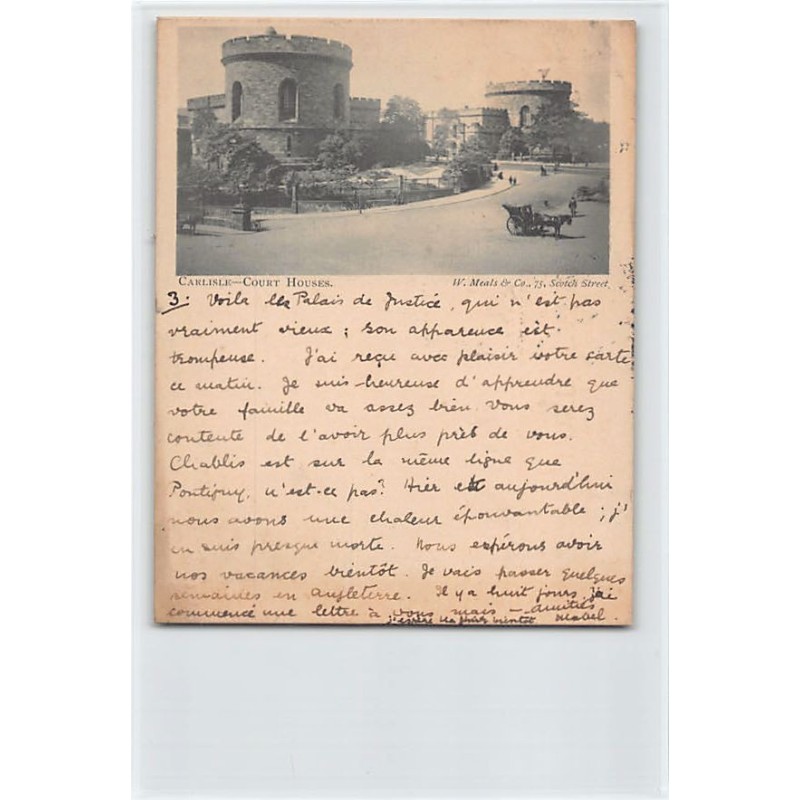 CARLISLE—COURT HOUSES.
W. Meals & Co., 75, Scotch Street
3. Voila les Palais de Justice, qui n'est pas
vraiment vieux; son apparence est
trompeuse. J'ai reçu avec plaisir votre carte
ce matin. Je suis heureuse d'apprendre que
votre famille va assez bien. Vous serez
contente de l'avoir plus près de vous.
Chablis est sur la même ligne que
Pontigny, n'est-ce pas? Hier et aujourd'hui
nous avons une chaleur épouvantable; j'
en suis presque morte. Nous espérons avoir
nos vacances bientôt. Je vais passer quelques
semaines en Angleterre. Il y a huit jours j'ai
commencé une lettre à vous mais — amitiés
j'espère la finir bientôt Mabel.